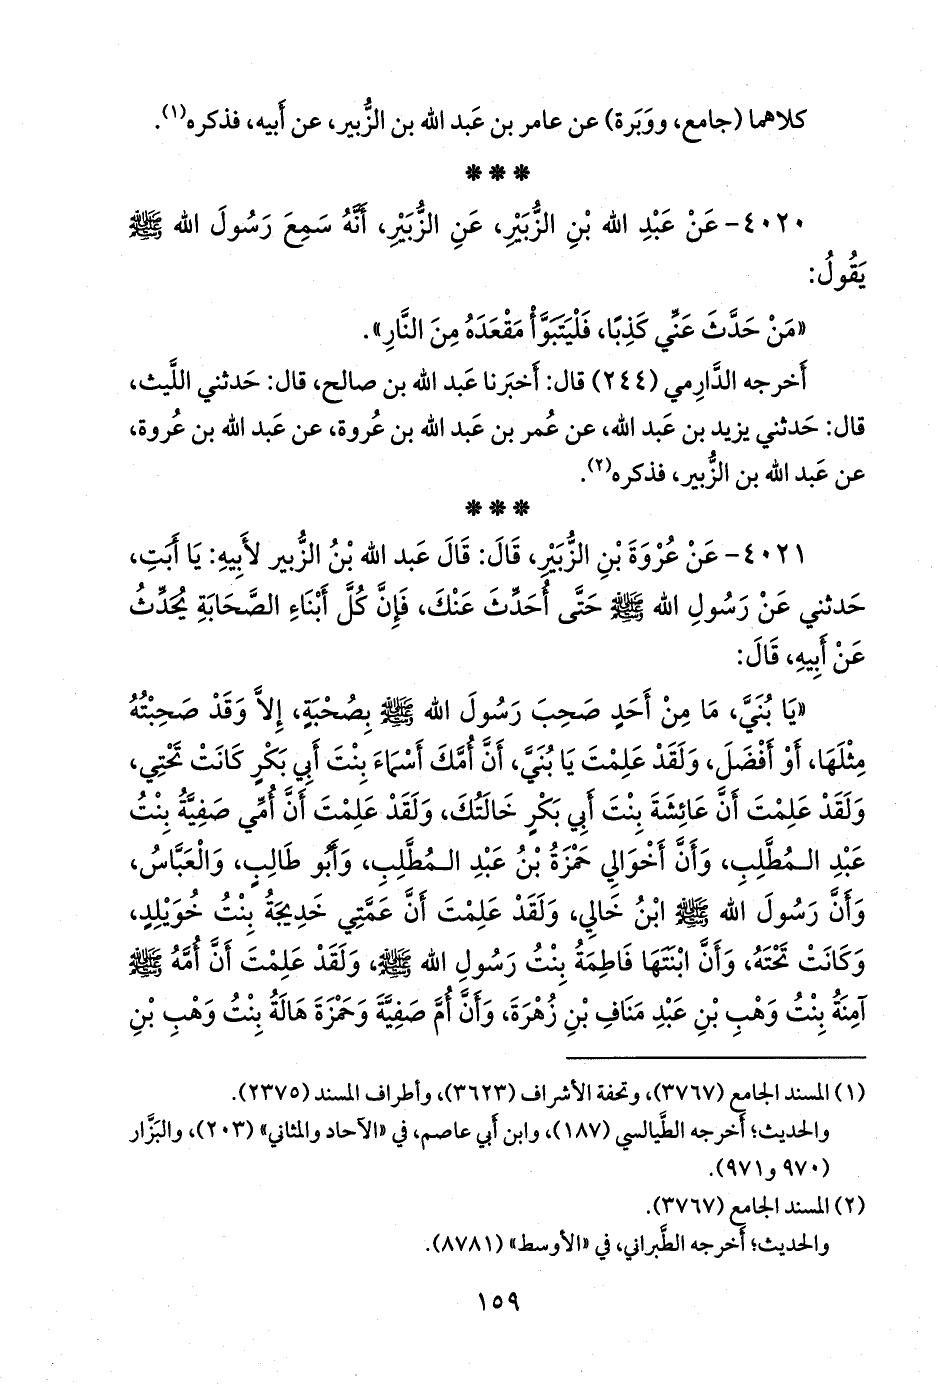 كلاهما (جامع، ووَبَرة) عن عامر بن عَبد الله بن الزُّبير، عن أَبيه، فذكره(١).
* * *
٤٠٢٠- عَنْ عَبْدِ الله بْنِ الزُّبَيْرِ، عَنِ الزُّبَيْرِ، أَنَّهُ سَمِعَ رَسُولَ الله ﷺ
يَقُولُ:
«مَنْ حَدَّثَ عَنِّي كَذِبًا، فَلْيَتَبَوَّأْ مَقْعَدَهُ مِنَ النَّارِ».
أَخرجه الدَّارِمي (٢٤٤) قال: أَخبَرنا عَبد الله بن صالح، قال: حَدثني اللَّيث،
قال: حَدثني يزيد بن عَبد الله، عن عُمر بن عَبد الله بن عُروة، عن عَبد الله بن عُروة،
عن عَبد الله بن الزُّبير، فذكره(٢).
* * *
٤٠٢١- عَنْ عُرْوَةَ بْنِ الزُّبَيْرِ، قَالَ: قَالَ عَبد الله بْنُ الزُّبير لأَبِيهِ: يَا أَبَتِ،
حَدثني عَنْ رَسُولِ الله ﷺ حَتَّى أُحَدِّثَ عَنْكَ، فَإِنَّ كُلَّ أَبْنَاءِ الصَّحَابَةِ يُحَدِّثُ
عَنْ أَبِيهِ، قَالَ:
«يَا بُنَيَّ، مَا مِنْ أَحَدٍ صَحِبَ رَسُولَ الله ﷺ بِصُحْبَةٍ، إِلاَّ وَقَدْ صَحِبْتُهُ
مِثْلَهَا، أَوْ أَفْضَلَ، وَلَقَدْ عَلِمْتَ يَا بُنَيَّ، أَنَّ أُمَّكَ أَسْمَاءَ بِنْتَ أَبِي بَكْرٍ كَانَتْ تَحْتِي،
وَلَقَدْ عَلِمْتَ أَنَّ عَائِشَةَ بِنْتَ أَبِي بَكْرٍ خَالَتُكَ، وَلَقَدْ عَلِمْتَ أَنَّ أُمِّي صَفِيَّةُ بِنْتُ
عَبْدِ الـمُطَّلِبِ، وَأَنَّ أَخْوَالِي حَمْزَةُ بْنُ عَبْدِ الـمُطَّلِبِ، وَأَبُو طَالِبٍ، وَالْعَبَّاسُ،
وَأَنَّ رَسُولَ الله ﷺ ابْنُ خَالِي، وَلَقَدْ عَلِمْتَ أَنَّ عَمَّتِي خَدِيجَةُ بِنْتُ خُوَيْلِدٍ،
وَكَانَتْ تَحْتَهُ، وَأَنَّ ابْنَتَهَا فَاطِمَةُ بِنْتُ رَسُولِ الله ﷺ، وَلَقَدْ عَلِمْتَ أَنَّ أُمَّهُ ﷺ
آمِنَةُ بِنْتُ وَهْبِ بْنِ عَبْدِ مَنَافِ بْنِ زُهْرَةَ، وَأَنَّ أُمَّ صَفِيَّةَ وَحَمْزَةَ هَالَةُ بِنْتُ وَهْبِ بْنِ
(١) المسند الجامع (٣٧٦٧)، وتحفة الأشراف (٣٦٢٣)، وأطراف المسند (٢٣٧٥).
والحديث؛ أَخرجه الطَّيالسي (١٨٧)، وابن أَبي عاصم، في «الآحاد والمثاني» (٢٠٣)، والبَزَّار
(٩٧٠ و٩٧١).
(٢) المسند الجامع (٣٧٦٧).
والحديث؛ أَخرجه الطَّبراني، في «الأوسط» (٨٧٨١).
١٥٩